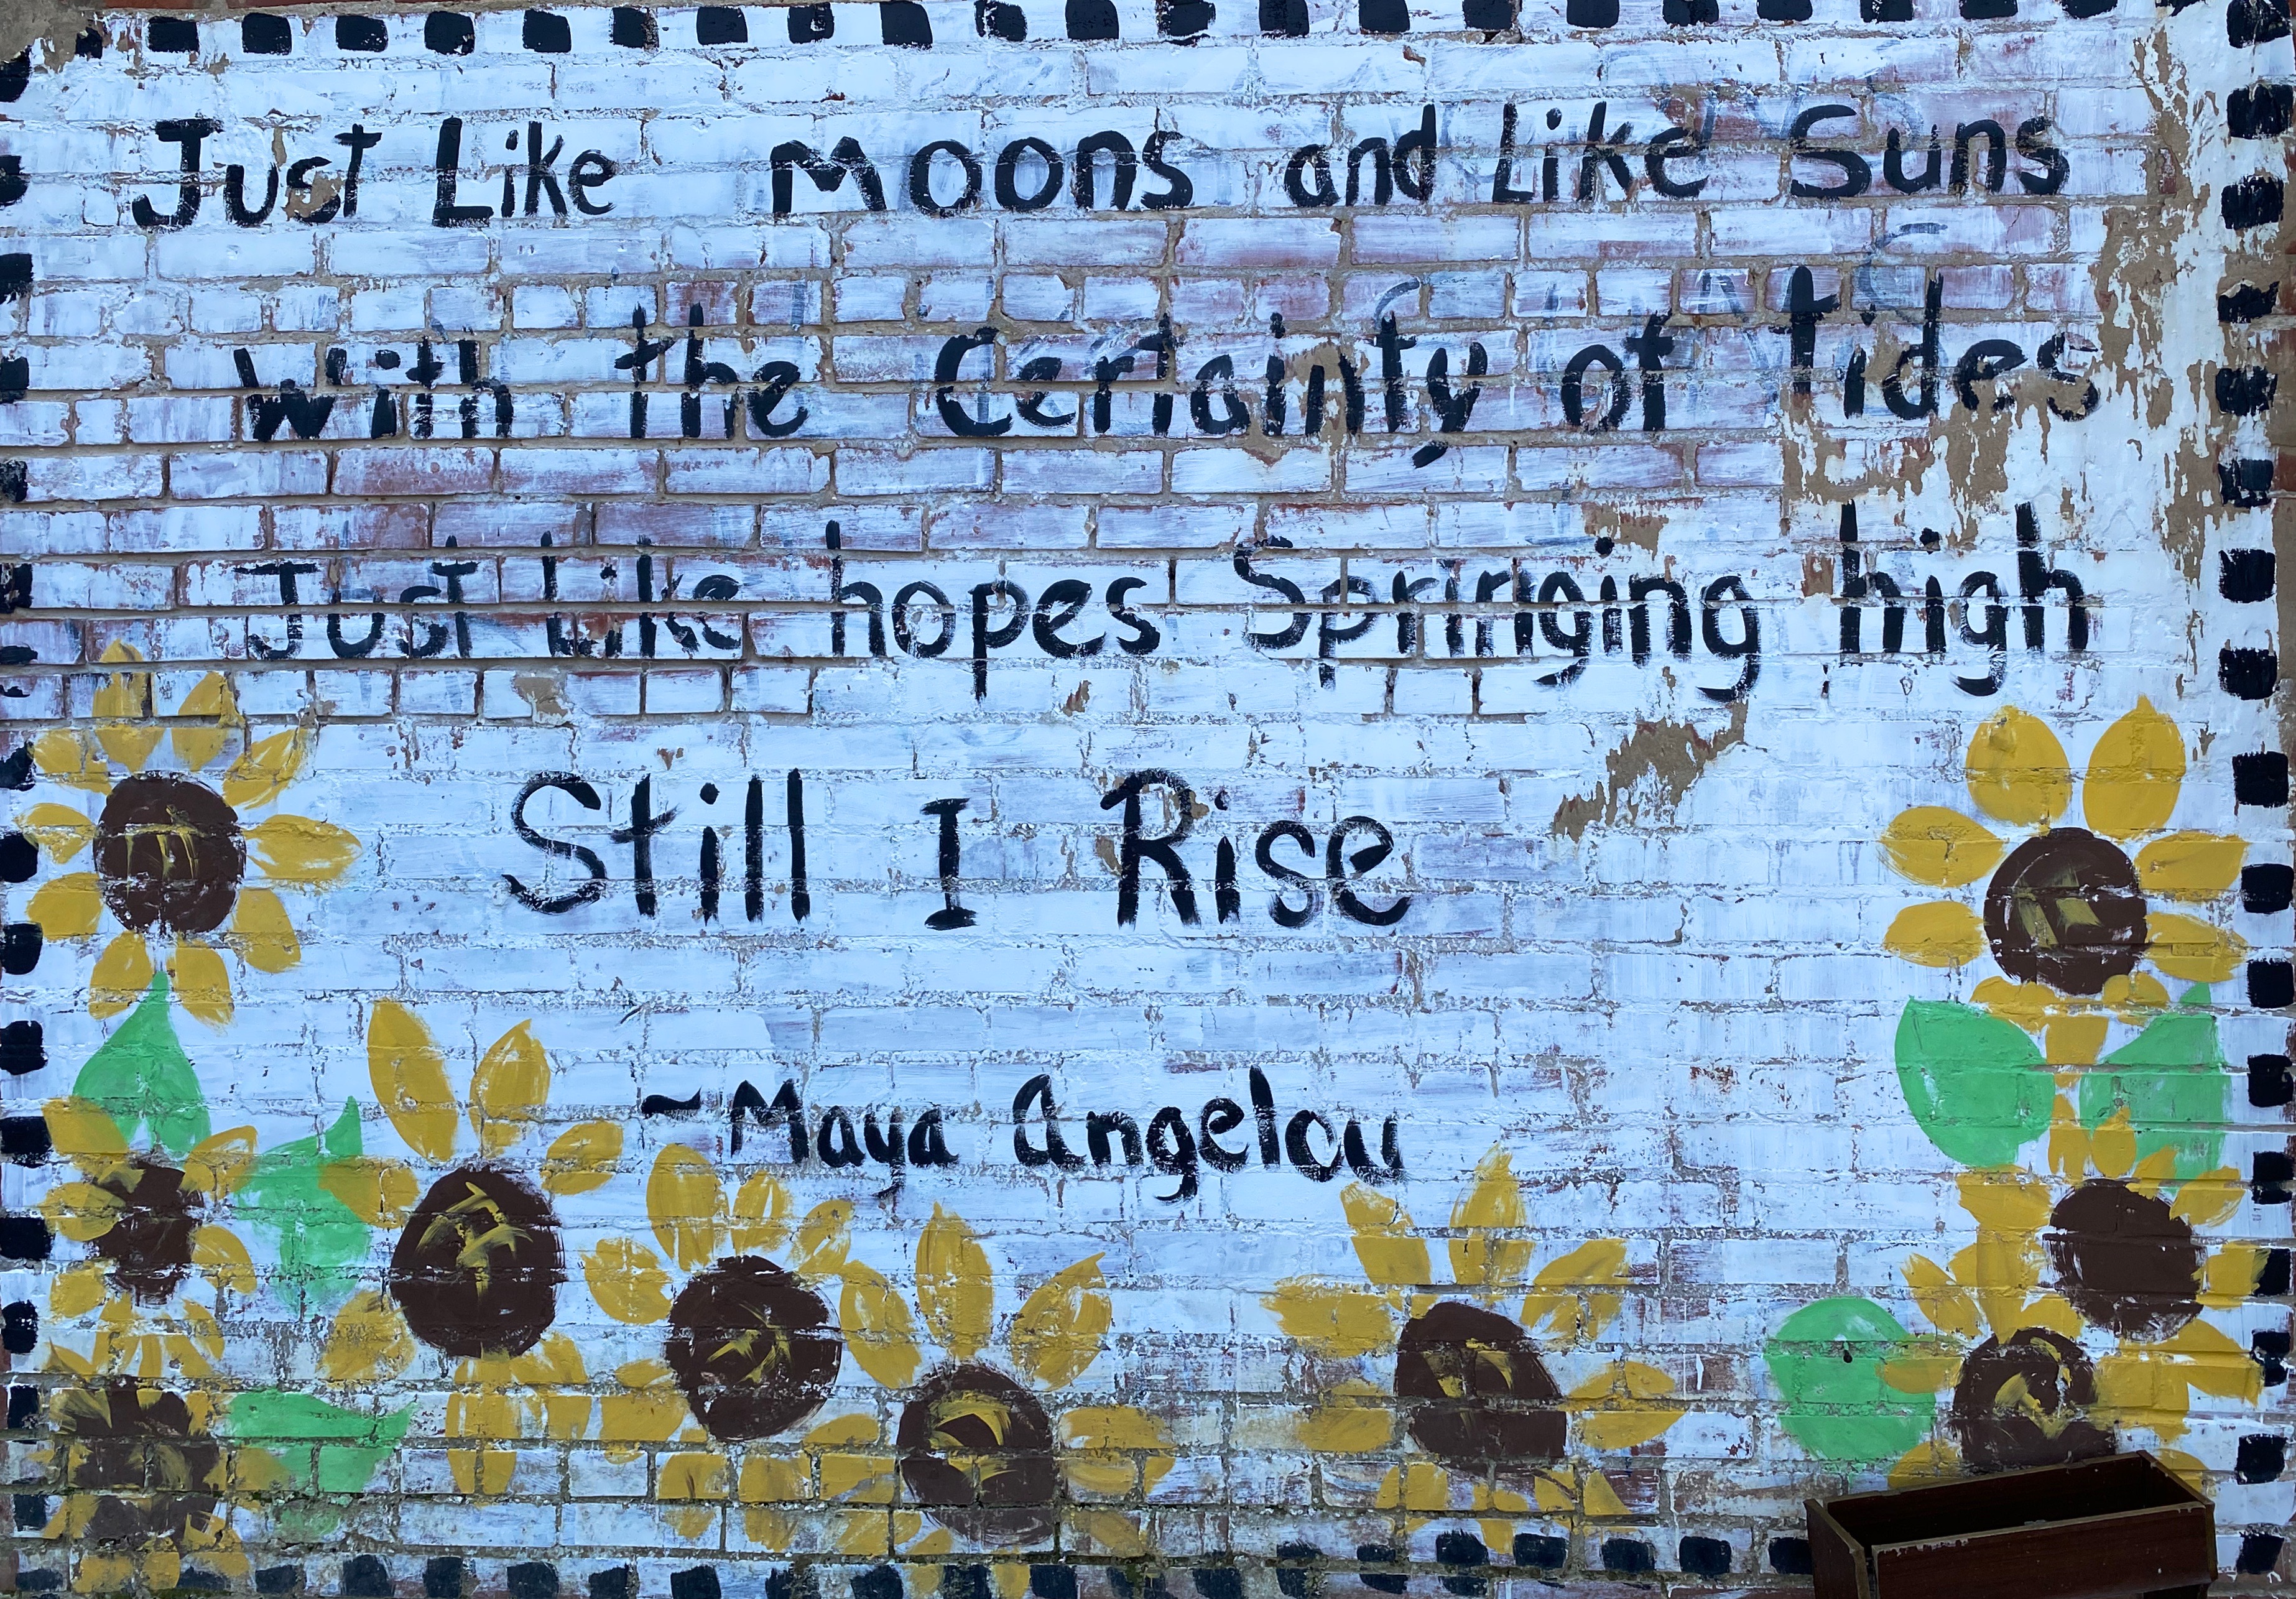 Just Like Moons and Like Suns
With the Certainty of tides
Just Like hopes Springing high
Still I Rise
~Maya Angelou